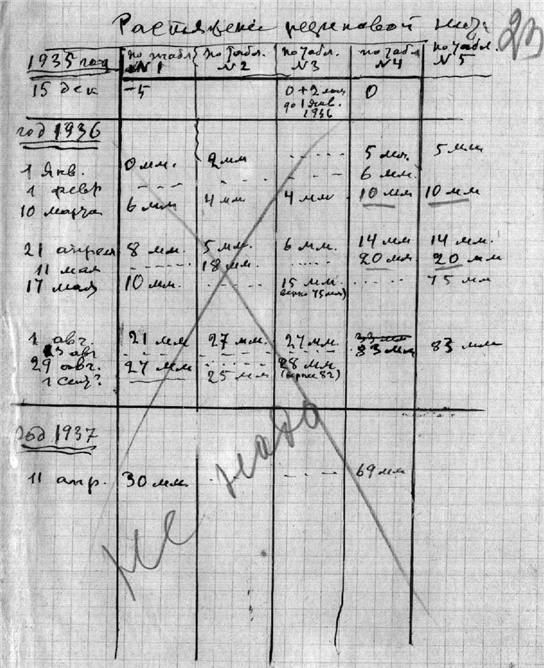 Растяжение резиновой нити
23
1935 год по табл. №1 по табл. №2 по табл. №3 по табл. №4 по табл. №5
15 дек -5 0+2 мм до 1 янв. 1936 0
год 1936
1 янв. 0 мм. 2 мм 5 мм. 5 мм
1 февр 6 мм.
10 марта 6 мм 4 мм 4 мм 10 мм 10 мм
21 апреля 8 мм. 5 мм. 6 мм. 14 мм 14 мм.
11 мая 18 мм. 20 мм 20 мм
17 мая 10 мм. 15 мм. (верно 75 мм) 75 мм
1 авг. 21 мм 27 мм. 27 мм. 33 мм 83 мм
23 авг 83 мм
29 авг. 27 мм 28 мм. (верно 82)
1 сент? 25 мм
год 1937
11 апр. 30 мм 69 мм
не надо